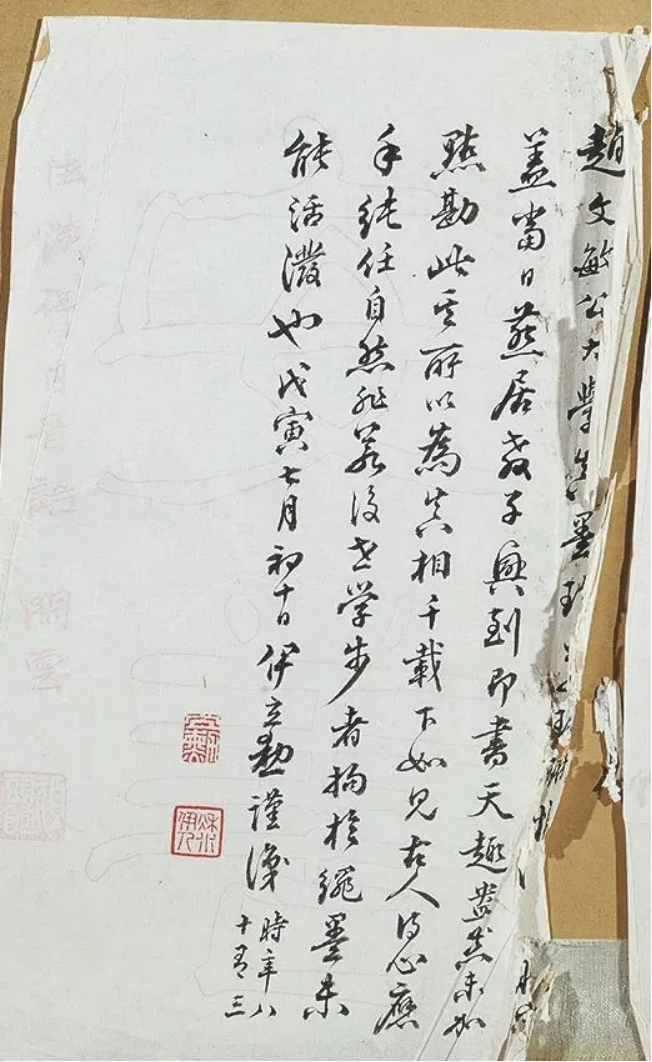 趙文敏公大學真墨
蓋當日燕居教子興到即書天趣盎然未加
點勘此其所以為真相千載下如見古人得心應
手純任自然非若後世学步者拘於繩墨未
能活潑也戊寅七月初十日伊立勳謹識
時年八
十有三